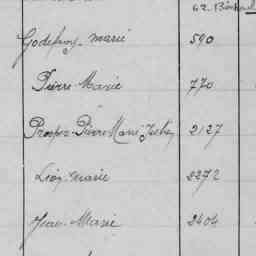 Godefroy marie 590
Pierre Marie 770
Prosper Pierre Marie 2127
Léon marie 2272
Jean Marie 2404